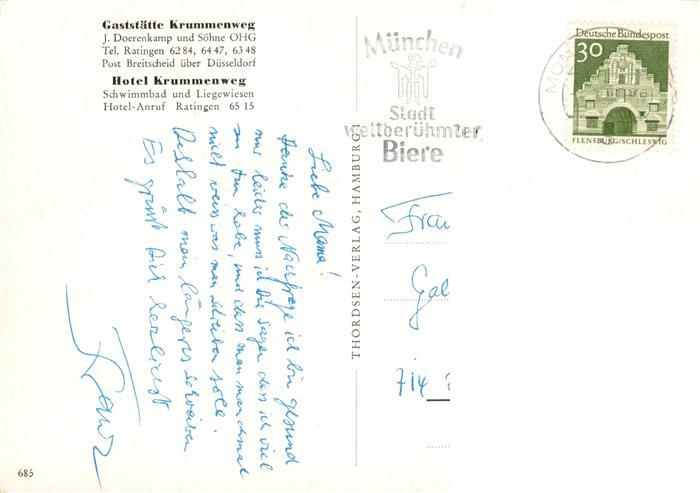 Gaststätte Krummenweg
J. Doerenkamp und Söhne OHG
Tel. Ratingen 62 84, 64 47, 63 48
Post Breitscheid über Düsseldorf
Hotel Krummenweg
Schwimmbad und Liegewiesen
Hotel-Anruf Ratingen 65 15
Liebe Mama!
Danke der Nachfrage ich bin gesund
nur leider muss ich Dir sagen dass ich viel
zu tun habe, und dass man manchmal
nicht weiss was man schreiben soll.
Deshalb mein längeres Schreiben
Es grüsst Dich herzlichst
Franz
685
THORDSEN-VERLAG, HAMBURG
München
Stadt
weltberühmter
Biere
MÜN
Deutsche Bundespost
30
FLENSBURG/SCHLESWIG
Frau
Gab
714